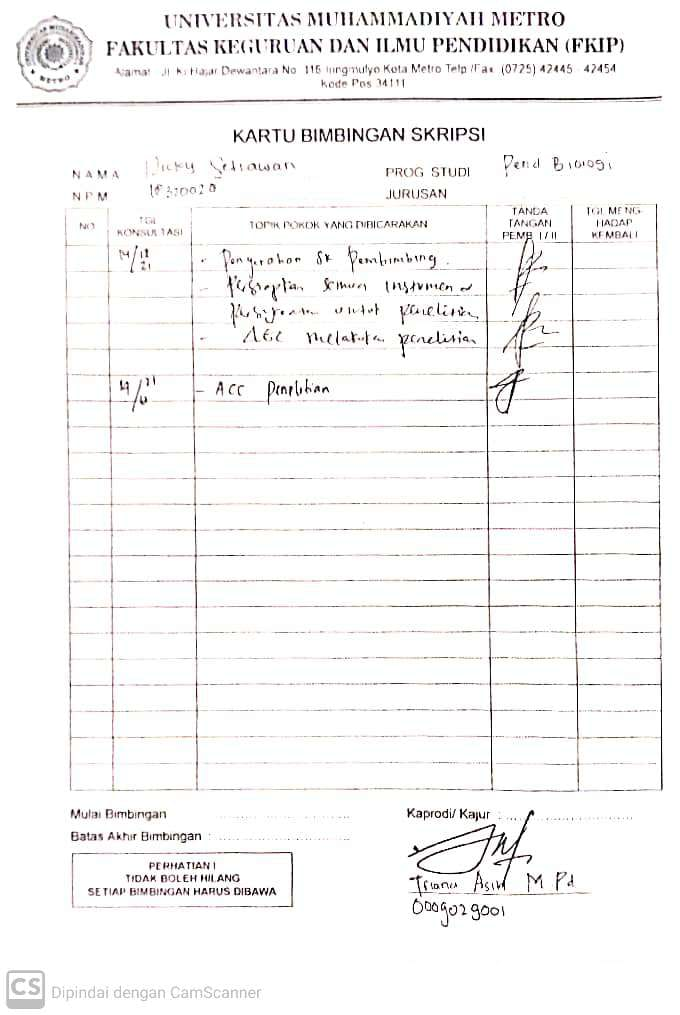 UNIVERSITAS MUHAMMADIYAH METRO
FAKULTAS KEGURUAN DAN ILMU PENDIDIKAN (FKIP)
Alamat Jl. Ki Hajar Dewantara No 116 Iringmulyo Kota Metro Telp /Fax (0725) 42445 - 42454
Kode Pos 34111
KARTU BIMBINGAN SKRIPSI
NAMA Dicky Setiawan PROG STUDI Pend Biologi
NPM JURUSAN
NO TGL KONSULTASI TOPIK POKOK YANG DIBICARAKAN TANDA TANGAN PEMB I/II TGL MENGHADAP KEMBALI
- Penyerahan SK Pembimbing
- Persiapan semua Instrumen
untuk penelitian
- ACC melakukan penelitian
- ACC Penelitian
Mulai Bimbingan
Batas Akhir Bimbingan :
Kaprodi/ Kajur :
PERHATIAN !
TIDAK BOLEH HILANG
SETIAP BIMBINGAN HARUS DIBAWA
Triana Asih M Pd
0009029001
CS Dipindai dengan CamScanner